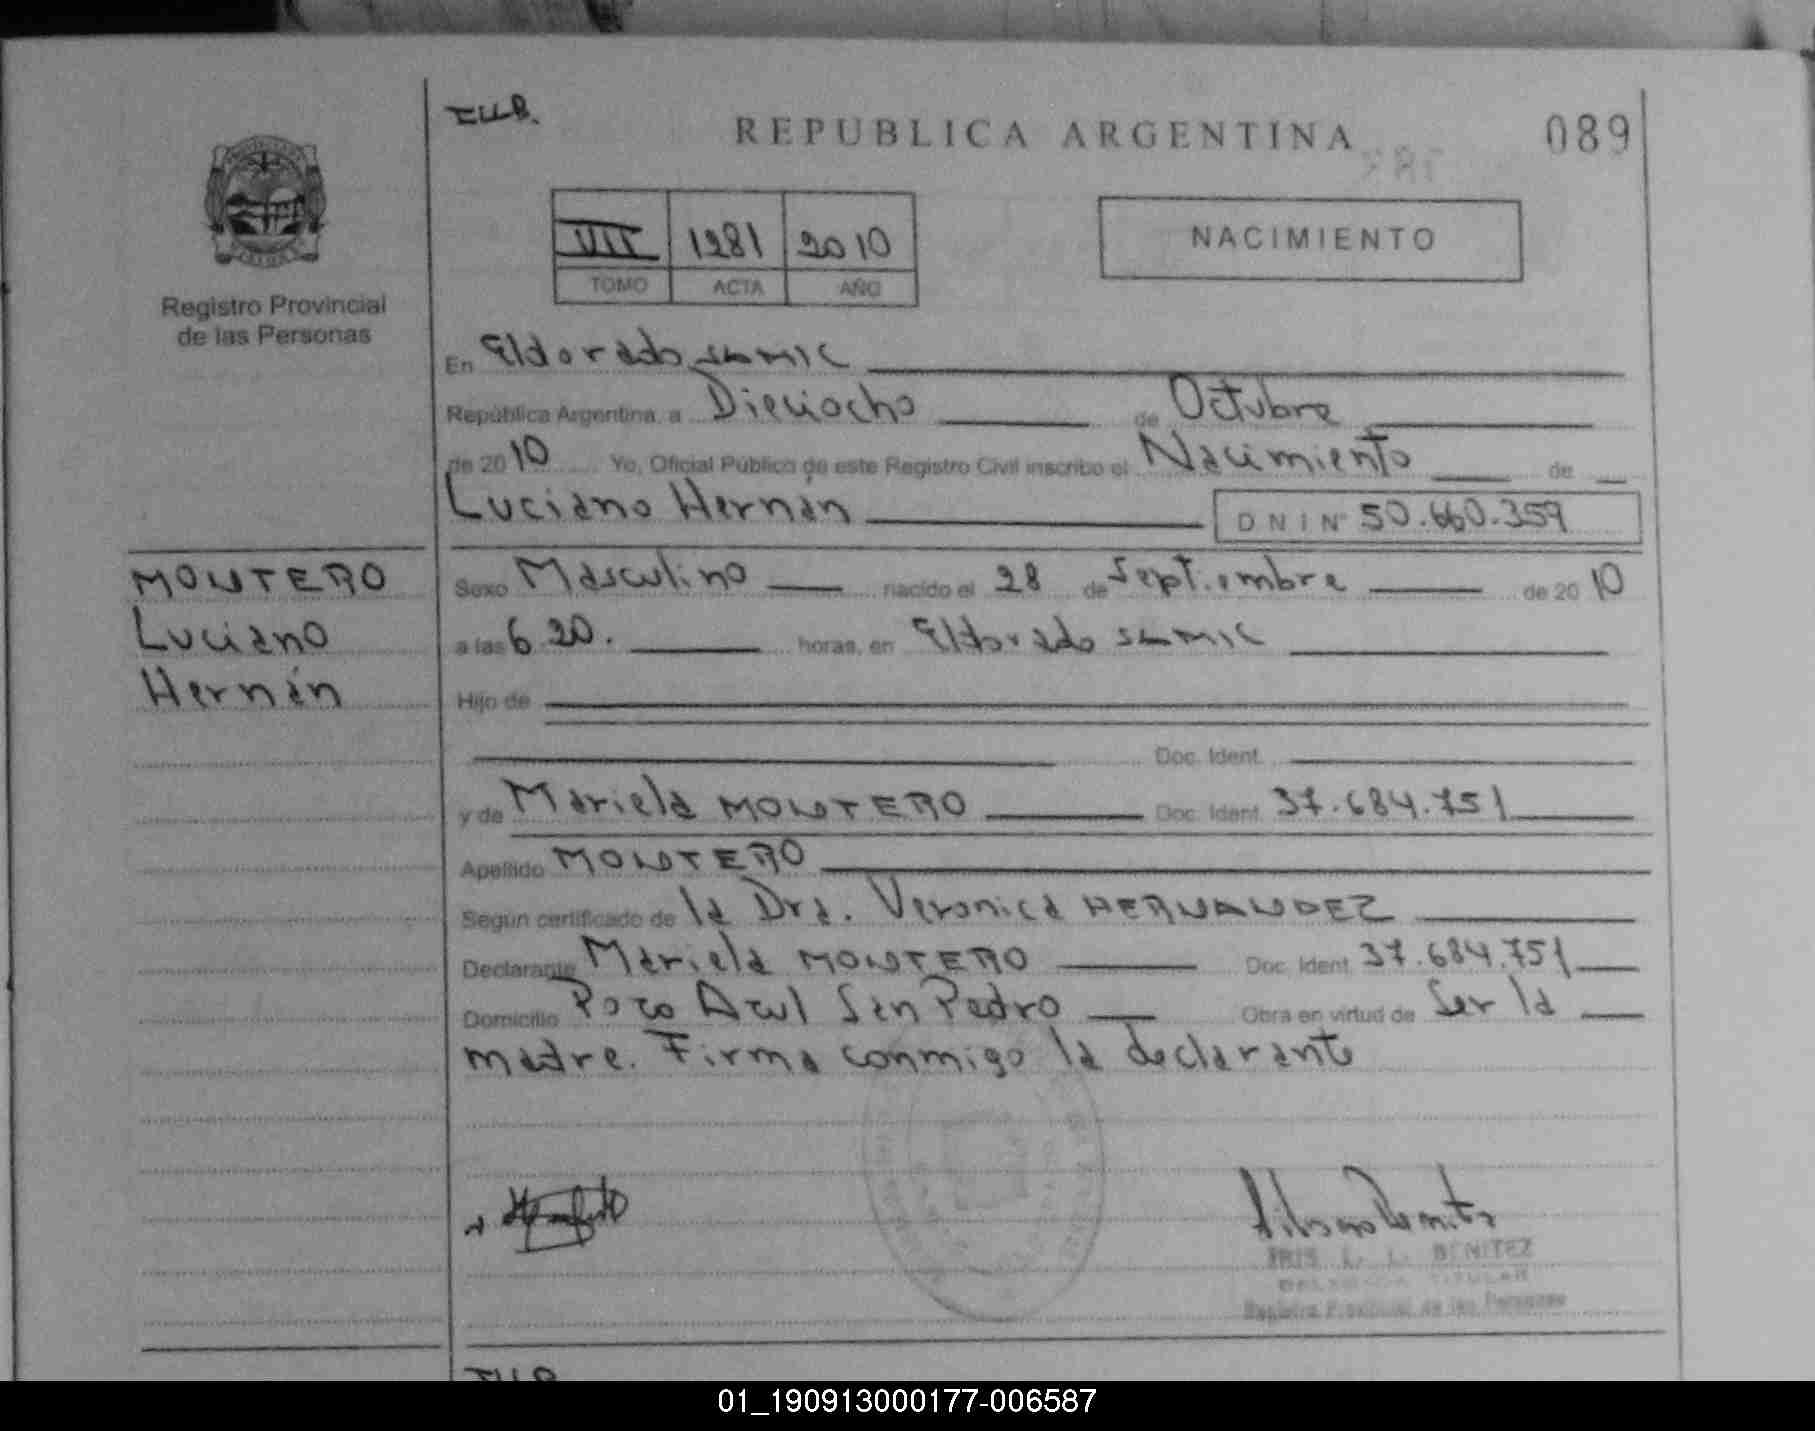 REPUBLICA ARGENTINA
089
VII 1281 2010
TOMO ACTA AÑO
NACIMIENTO
Registro Provincial
de las Personas
En Eldorado SAMIC
República Argentina, a Dieciocho de Octubre
de 2010 Yo, Oficial Público de este Registro Civil inscribo el Nacimiento de
Luciano Hernán DNI Nº 50.660.359
MONTERO
Luciano
Hernán
Sexo Masculino nacido el 28 de Septiembre de 2010
a las 6.20. horas, en Eldorado SAMIC
Hijo de
Doc. Ident.
y de Mariela MONTERO Doc. Ident. 37.684.751
Apellido MONTERO
Según certificado de la Dra. Veronica HERNANDEZ
Declarante Mariela MONTERO Doc. Ident. 37.684.751
Domicilio Pozo Azul San Pedro Obra en virtud de Ser la
madre. Firma conmigo la declarante
IRIS L. L. BENITEZ
DELEGADA TITULAR
Registro Provincial de las Personas
01_190913000177-006587